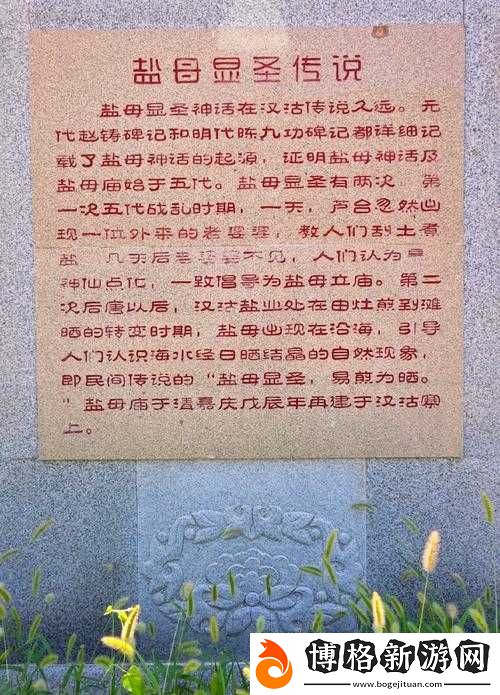 盐母显圣传说
盐母显圣神话在汉沽传说久远。元
代赵铸碑记和明代陈九功碑记都详细记
载了盐母神话的起源，证明盐母神话及
盐母庙始于五代。盐母显圣有两次，第
一次五代战乱时期，一天，芦台忽然出
现一位外来的老婆婆，教人们刮土煮
盐 几天后老婆婆不见，人们认为是
神仙点化，一致倡导为盐母立庙。第二
次后唐以后，汉沽盐业处在由灶煎到滩
晒的转变时期，盐母出现在沿海，引导
人们认识海水经日晒结晶的自然现象，
即民间传说的“盐母显圣，易煎为晒。
”盐母庙于清嘉庆戊辰年再建于汉沽寨
上。
博格新游网
www.bogejituan.com